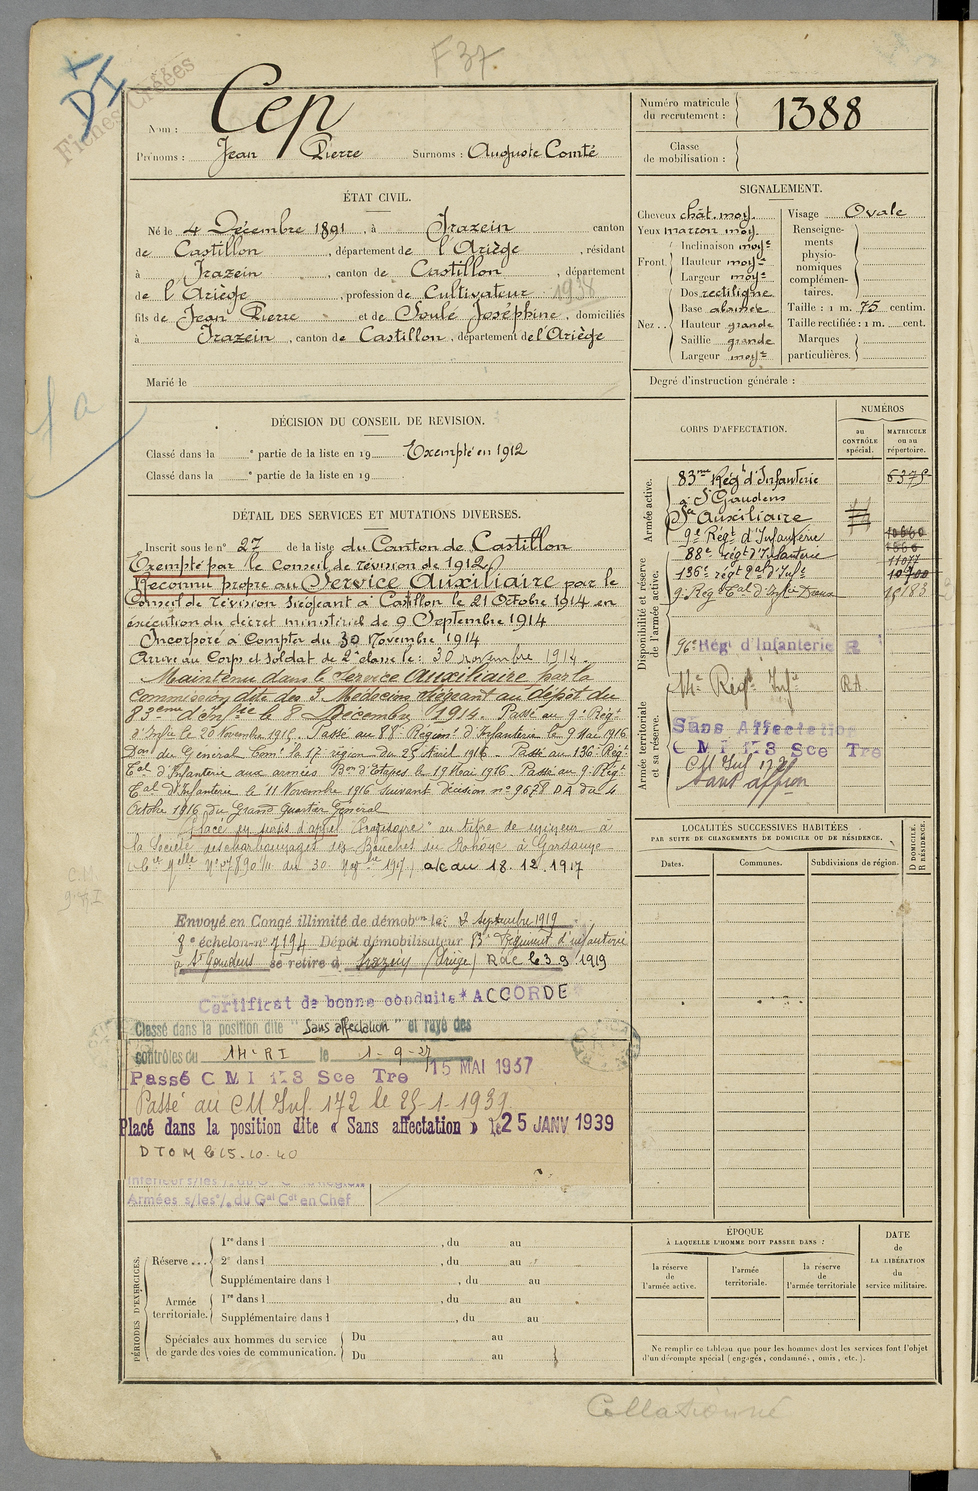 F 37.
DI
Fiches Créées
Nom : Cep
Prénoms : Jean Pierre Surnoms : Auguste Comté
Numéro matricule du recrutement : 1388
Classe de mobilisation :
ÉTAT CIVIL.
Né le 4 Décembre 1891, à Irazein canton
de Castillon, département de l'Ariège, résidant
à Irazein, canton de Castillon, département
de l'Ariège, profession de Cultivateur 1938
fils de Jean Pierre et de Soulé Joséphine, domiciliés
à Irazein, canton de Castillon, département de l'Ariège
Marié le
SIGNALEMENT.
Cheveux chât. moy.
Yeux marron moy.
Front. Inclinaison moyne
Hauteur moyne
Largeur moyne
Nez .. Dos rectiligne
Base abaissée
Hauteur grande
Saillie grande
Largeur moyne
Visage Ovale
Renseignements physionomiques complémentaires.
Taille : 1 m. 75 centim.
Taille rectifiée : 1 m. cent.
Marques particulières.
Degré d'instruction générale :
DÉCISION DU CONSEIL DE REVISION.
Classé dans la e partie de la liste en 19 Exempté en 1912
Classé dans la e partie de la liste en 19
DÉTAIL DES SERVICES ET MUTATIONS DIVERSES.
Inscrit sous le n° 27 de la liste du Canton de Castillon
Exempté par le Conseil de révision de 1912
Reconnu propre au Service Auxiliaire par le
Conseil de révision siégeant à Castillon le 21 Octobre 1914 en
exécution du décret ministériel de 9 Septembre 1914
Incorporé à Compter du 30 Novembre 1914
Arrivé au Corps et Soldat de 2e classe le: 30 novembre 1914.
Maintenu dans le Service Auxiliaire par la
Commission dite des 3 Médecins siégeant au dépôt du
83eme d'Infrie le 8 Décembre 1914. Passé au 9e Régt
d'Infie le 20 Novembre 1915. Passé au 88e Régiment d'Infanterie le 9 Mai 1916
Don du Général Comt la 17e région du 25 Avril 1916. Passé au 136e Régt
Tal d'Infanterie aux armées Bon d'Etapes le 19 Mai 1916. Passé au 9e Régt
Tal d'Infanterie le 11 Novembre 1916 suivant décision n° 9678 DA du 4
Octobre 1916 du Grand Quartier Général
Placé en sursis d'appel au titre de mineur à
la Société des charbonnages des Bouches du Rhône à Gardanne
du 30 1917) a/c du 18.12.1917
Envoyé en Congé illimité de démobon le: 2 Septembre 1919
8e échelon n° 7194 Dépôt démobilisateur 83e Régiment d'infanterie
à St Gaudens se retire à Irazein (Ariège) RDC le 3 9 1919
Certificat de bonne conduite "ACCORDÉ"
Classé dans la position dite "Sans affectation" et rayé des
contrôles du 14e RI le 1-9-27
Passé CMI 173 Sce Tre 15 MAI 1937
Passé au CM Inf. 172 le 25-1-1939
Placé dans la position dite « Sans affectation » le 25 JANV 1939
DTOM le 15.10.40
Armées s/les % du Gal Cdt en Chef
CORPS D'AFFECTATION.
NUMÉROS
au CONTRÔLE spécial.
MATRICULE ou au répertoire.
Armée active.
83me Régt d'Infanterie 6375
à St Gaudens
Sce Auxiliaire
Disponibilité et réserve de l'armée active.
9e Régt d'Infanterie
88e régt d'Infanterie 11077
136e régt tal d'Infie 10900
9e Rég Tal d'Infie
96e Régt d'Infanterie R
Armée territoriale et sa réserve.
14e Régt Infie RA
Sans Affectation
CMI 173 Sce Tre
CM Inf 172
Sans affon
LOCALITÉS SUCCESSIVES HABITÉES
PAR SUITE DE CHANGEMENTS DE DOMICILE OU DE RÉSIDENCE.
Dates. Communes. Subdivisions de région.
D DOMICILE. R RÉSIDENCE.
PÉRIODES D'EXERCICES.
Réserve ... 1re dans l , du au
2e dans l , du au
Supplémentaire dans l , du au
Armée territoriale. 1re dans l , du au
Supplémentaire dans l , du au
Spéciales aux hommes du service de garde des voies de communication. Du au
Du au
ÉPOQUE
À LAQUELLE L'HOMME DOIT PASSER DANS :
la réserve de l'armée active.
l'armée territoriale.
la réserve de l'armée territoriale
DATE de LA LIBÉRATION du service militaire.
Ne remplir ce tableau que pour les hommes dont les services font l'objet
d'un décompte spécial (engagés, condamnés, omis, etc.).
Collationné